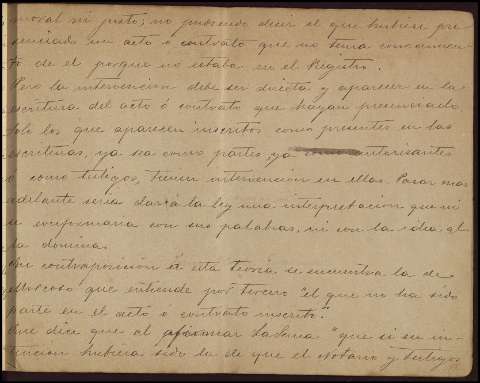 moral ni justo; no pudiendo decir el que hubiese pre-
senciado un acto ó contrato que no tenia conocimien-
to de él porque no estaba en el Registro.
Pero la intervencion debe ser directa y aparecer en la
escritura del acto ó contrato que hayan presenciado
solo los que aparecen inscritos como presentes en las
escrituras, ya sea como partes, ya como autorizantes
o como testigos, tienen intervencion en ellas. Pasar mas
adelante seria dar á la ley una interpretacion que ni
se conformaria con sus palabras, ni con la idea que
la domina.
En contraposicion á esta teoría se encuentra la de
Moscoso que entiende por tercero "el que no ha sido
parte en el acto ó contrato inscrito".
Que dice que al afirmar Laserna "que si su in-
tencion hubiera sido la de que el Notario y testigos